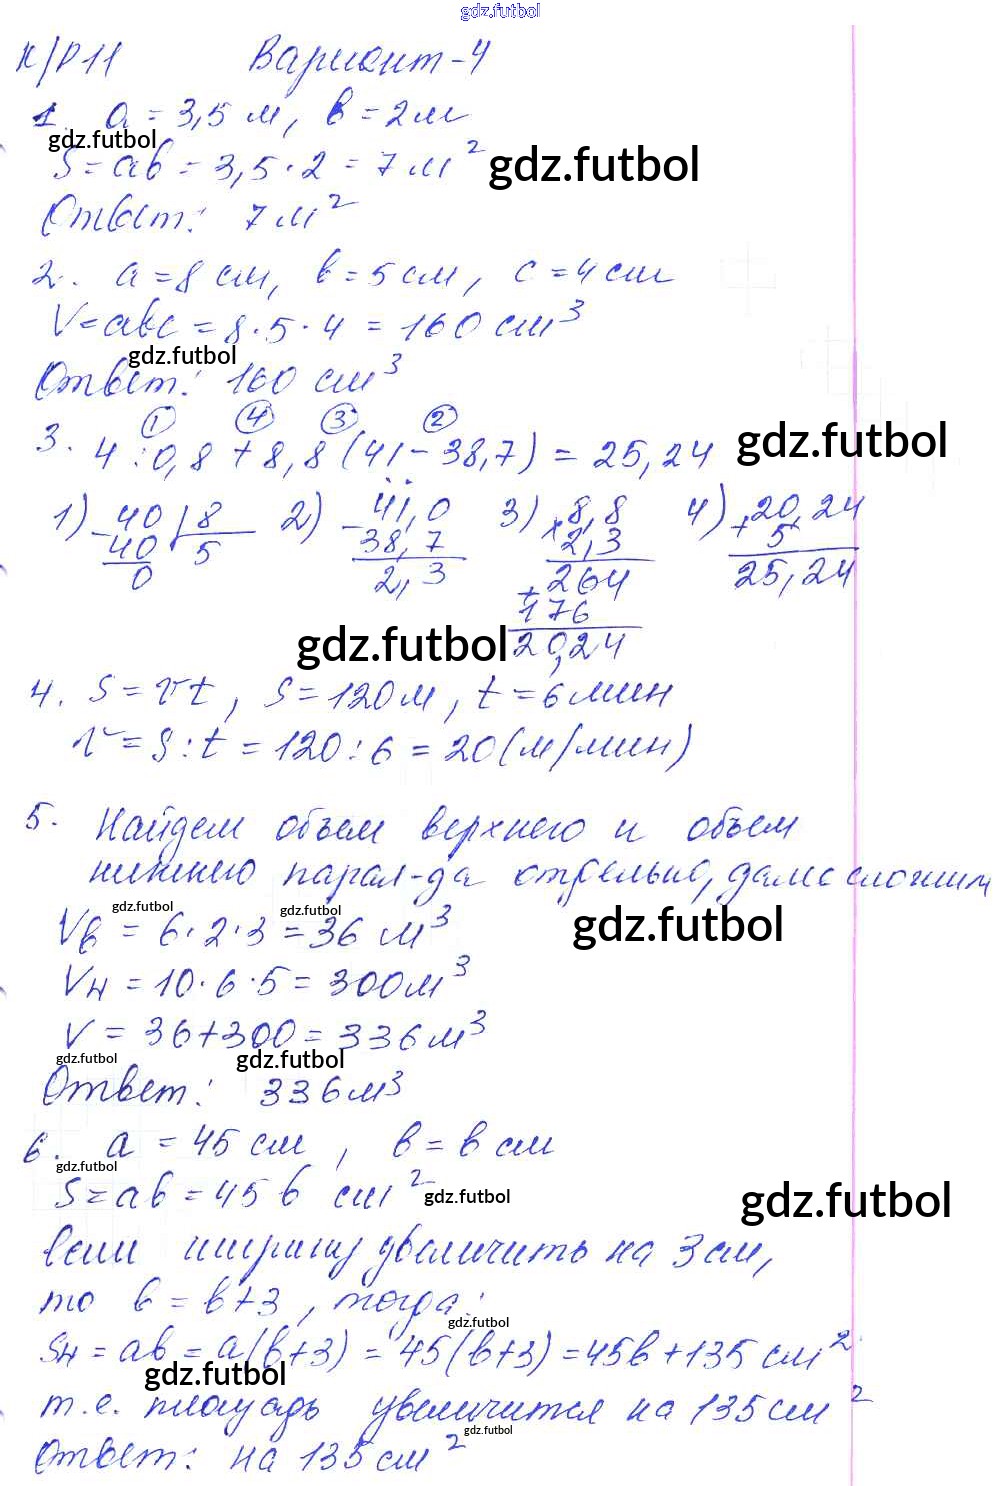 gdz.futbol
К/Р 11 Вариант-4
1. a = 3,5 м, b = 2м
gdz.futbol
S = ab = 3,5 · 2 = 7 м² gdz.futbol
Ответ: 7 м²
2. a = 8 см, b = 5 см, c = 4 см
V = abc = 8 · 5 · 4 = 160 см³
gdz.futbol
Ответ: 160 см³
① ④ ③ ②
3. 4 : 0,8 + 8,8 (41 - 38,7) = 25,24 gdz.futbol
1) 40 | 8 2) 41,0 3) 8,8 4) 20,24
- 40 5 - 38,7 × 2,3 + 5
0 2,3 264 25,24
+ 176
gdz.futbol 20,24
4. S = vt, S = 120 м, t = 6 мин
v = S : t = 120 : 6 = 20 (м/мин)
5. Найдем объем верхнего и объем
нижнего парал-да отдельно, далее сложим
gdz.futbol gdz.futbol
Vв = 6 · 2 · 3 = 36 м³ gdz.futbol
Vн = 10 · 6 · 5 = 300 м³
V = 36 + 300 = 336 м³
gdz.futbol gdz.futbol
Ответ: 336 м³
6. a = 45 см, b = b см
gdz.futbol
S = ab = 45 b см² gdz.futbol gdz.futbol
если ширину увеличить на 3 см,
то b = b + 3, тогда:
gdz.futbol
Sн = ab = a(b+3) = 45(b+3) = 45b + 135 см²
gdz.futbol
т.е. площадь увеличится на 135 см²
gdz.futbol
Ответ: на 135 см²